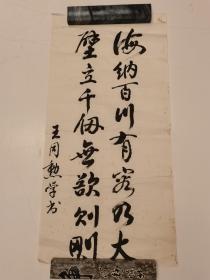 海纳百川有容乃大
壁立千仞無欲则刚
王同勲学书